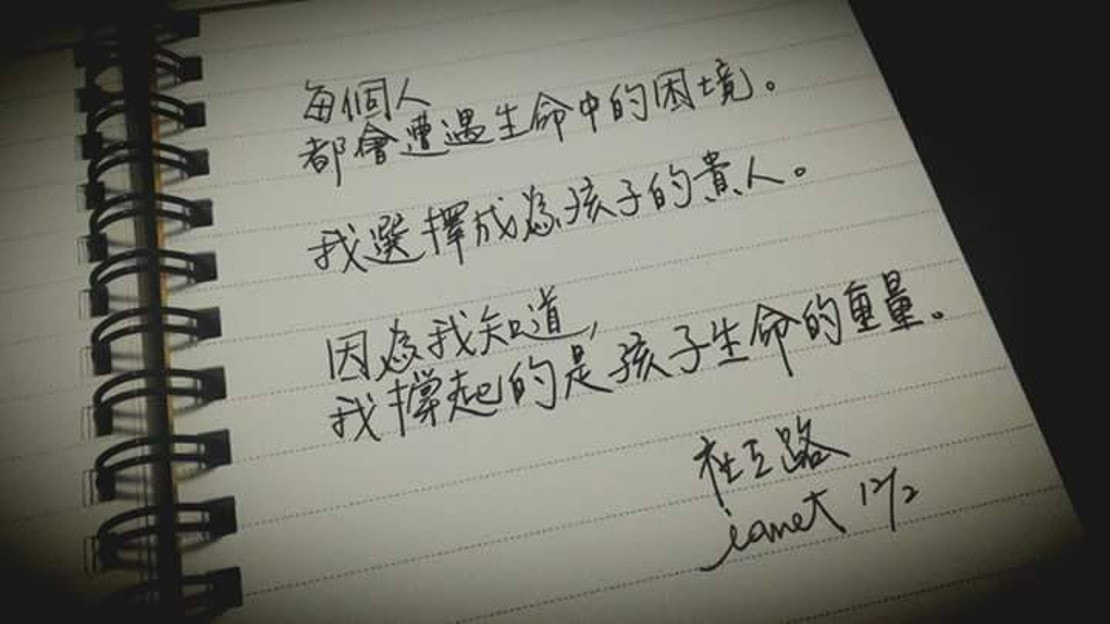 每個人
都會遭遇生命中的困境。
我選擇成為孩子的貴人。
因為我知道,
我撐起的是孩子生命的重量。
社工路
Janet 12/2